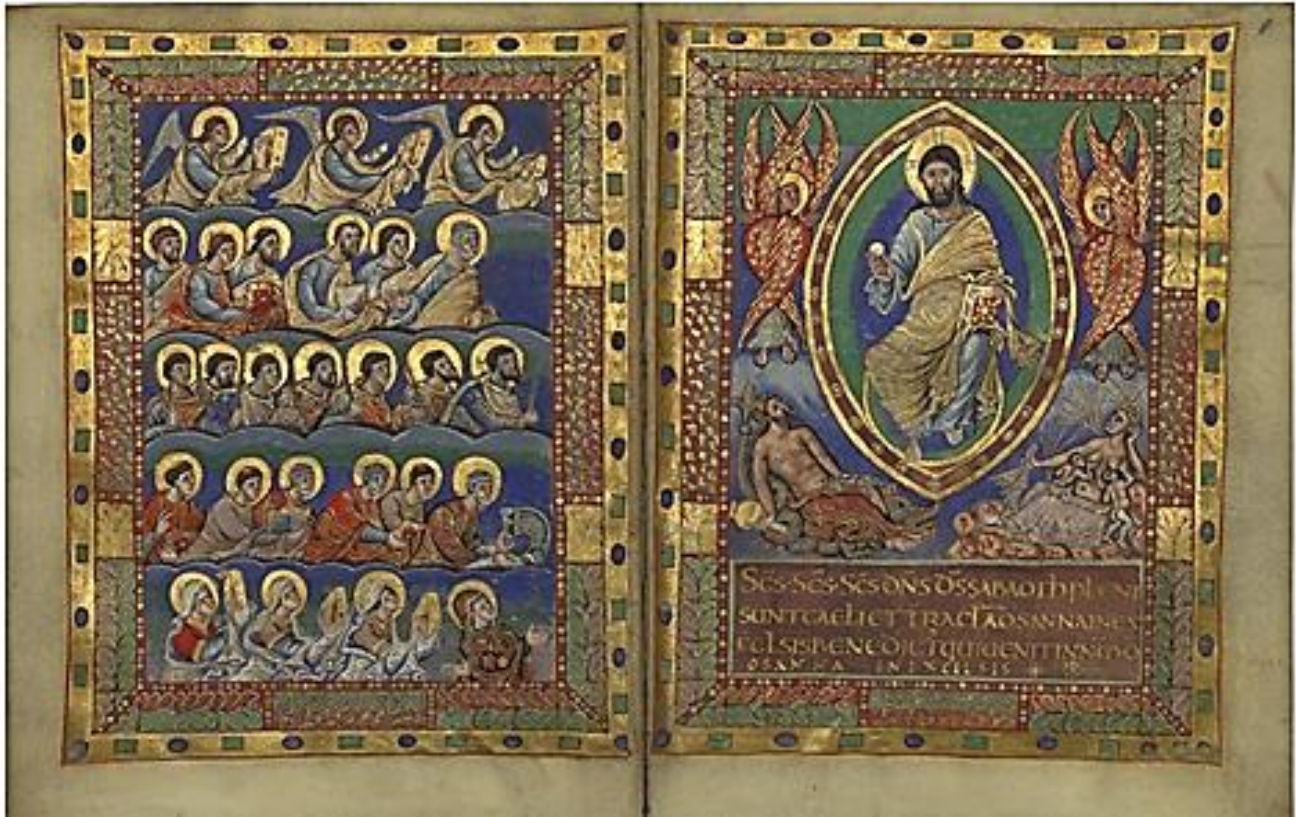 SC̄S·SC̄S·SC̄S DN̄S D̄S SABAOTH PLENI
SUNT CAELI ET T̄RA GL̄A OSANNA IN EX
CELSIS BENEDICT̄ QUI UENIT IN
OSANNA IN EXCELSIS